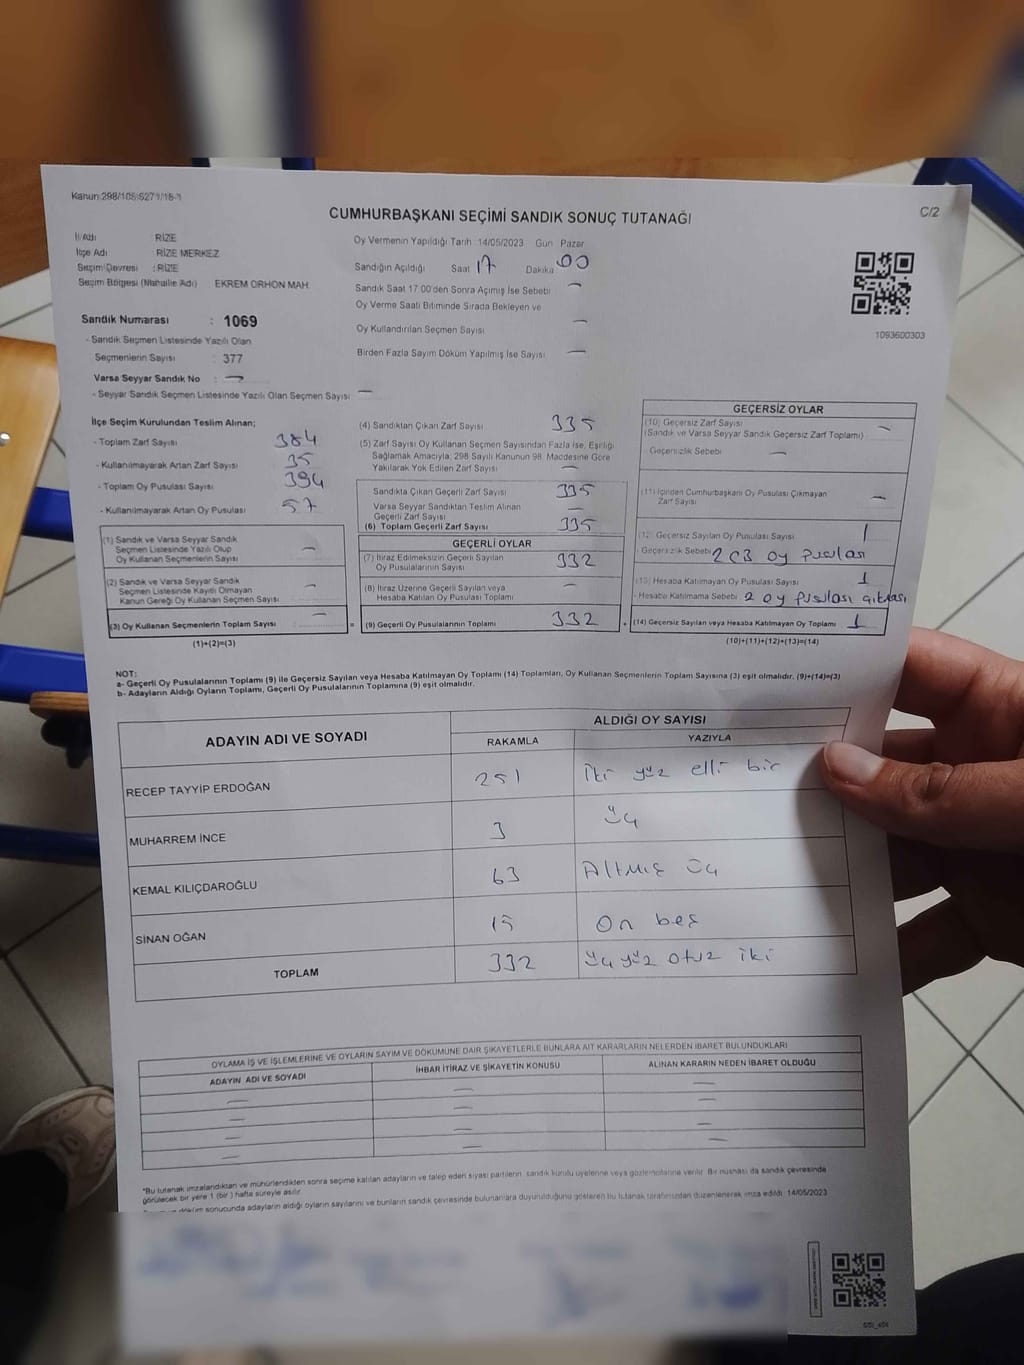 Kanun:298/105;6271/18-1
CUMHURBAŞKANI SEÇİMİ SANDIK SONUÇ TUTANAĞI
C/2
İl Adı RİZE
İlçe Adı : RİZE MERKEZ
Seçim Çevresi : RİZE
Seçim Bölgesi (Mahalle Adı) EKREM ORHON MAH.
Oy Vermenin Yapıldığı Tarih :14/05/2023 Gün Pazar
Sandığın Açıldığı Saat 17 Dakika 00
Sandık Saat 17:00'den Sonra Açımış İse Sebebi —
Oy Verme Saati Bitiminde Sırada Bekleyen ve
Oy Kullandırılan Seçmen Sayısı —
Birden Fazla Sayım Döküm Yapılmış İse Sayısı —
1093600303
Sandık Numarası : 1069
- Sandık Seçmen Listesinde Yazılı Olan
Seçmenlerin Sayısı : 377
Varsa Seyyar Sandık No : —
- Seyyar Sandık Seçmen Listesinde Yazılı Olan Seçmen Sayısı —
İlçe Seçim Kurulundan Teslim Alınan;
- Toplam Zarf Sayısı 384
- Kullanılmayarak Artan Zarf Sayısı 35
- Toplam Oy Pusulası Sayısı 394
- Kullanılmayarak Artan Oy Pusulası 57
(1) Sandık ve Varsa Seyyar Sandık
Seçmen Listesinde Yazılı Olup
Oy Kullanan Seçmenlerin Sayısı —
(2) Sandık ve Varsa Seyyar Sandık
Seçmen Listesinde Kayıtlı Olmayan
Kanun Gereği Oy Kullanan Seçmen Sayısı —
(3) Oy Kullanan Seçmenlerin Toplam Sayısı — =
(1)+(2)=(3)
(4) Sandıktan Çıkan Zarf Sayısı 335
(5) Zarf Sayısı Oy Kullanan Seçmen Sayısından Fazla İse, Eşitliği
Sağlamak Amacıyla; 298 Sayılı Kanunun 98. Maddesine Göre
Yakılarak Yok Edilen Zarf Sayısı —
Sandıkta Çıkan Geçerli Zarf Sayısı 335
Varsa Seyyar Sandıktan Teslim Alınan
Geçerli Zarf Sayısı —
(6) Toplam Geçerli Zarf Sayısı 335
GEÇERLİ OYLAR
(7) İtiraz Edilmeksizin Geçerli Sayılan
Oy Pusulalarının Sayısı 332
(8) İtiraz Üzerine Geçerli Sayılan veya
Hesaba Katılan Oy Pusulası Toplamı —
(9) Geçerli Oy Pusulalarının Toplamı 332 +
GEÇERSİZ OYLAR
(10) Geçersiz Zarf Sayısı
(Sandık ve Varsa Seyyar Sandık Geçersiz Zarf Toplamı) —
- Geçersizlik Sebebi —
(11) İçinden Cumhurbaşkanı Oy Pusulası Çıkmayan
Zarf Sayısı —
(12) Geçersiz Sayılan Oy Pusulası Sayısı 1
- Geçersizlik Sebebi 2 CB oy pusulası
(13) Hesaba Katılmayan Oy Pusulası Sayısı 1
- Hesaba Katılmama Sebebi 2 oy pusulası çıkması
(14) Geçersiz Sayılan veya Hesaba Katılmayan Oy Toplamı 1
(10)+(11)+(12)+(13)=(14)
NOT:
a- Geçerli Oy Pusulalarının Toplamı (9) ile Geçersiz Sayılan veya Hesaba Katılmayan Oy Toplamı (14) Toplamları, Oy Kullanan Seçmenlerin Toplam Sayısına (3) eşit olmalıdır. (9)+(14)=(3)
b- Adayların Aldığı Oyların Toplamı, Geçerli Oy Pusulalarının Toplamına (9) eşit olmalıdır.
ADAYIN ADI VE SOYADI
ALDIĞI OY SAYISI
RAKAMLA YAZIYLA
RECEP TAYYİP ERDOĞAN 251 iki yüz elli bir
MUHARREM İNCE 3 üç
KEMAL KILIÇDAROĞLU 63 Altmış üç
SİNAN OĞAN 15 on beş
TOPLAM 332 üç yüz otuz iki
OYLAMA İŞ VE İŞLEMLERİNE VE OYLARIN SAYIM VE DÖKÜMÜNE DAİR ŞİKAYETLERLE BUNLARA AİT KARARLARIN NELERDEN İBARET BULUNDUKLARI
ADAYIN ADI VE SOYADI İHBAR İTİRAZ VE ŞİKAYETİN KONUSU ALINAN KARARIN NEDEN İBARET OLDUĞU
— — —
— — —
— — —
— — —
*Bu tutanak imzalandıktan ve mühürlendikten sonra seçime katılan adayların ve talep eden siyasi partilerin, sandık kurulu üyelerine veya gözlemcilerine verilir. Bir nüshası da sandık çevresinde
görülecek bir yere 1 (bir) hafta süreyle asılır.
döküm sonucunda adayların aldığı oyların sayılarını ve bunların sandık çevresinde bulunanlara duyurulduğunu gösteren bu tutanak tarafımızdan düzenlenerek imza edildi. 14/05/2023